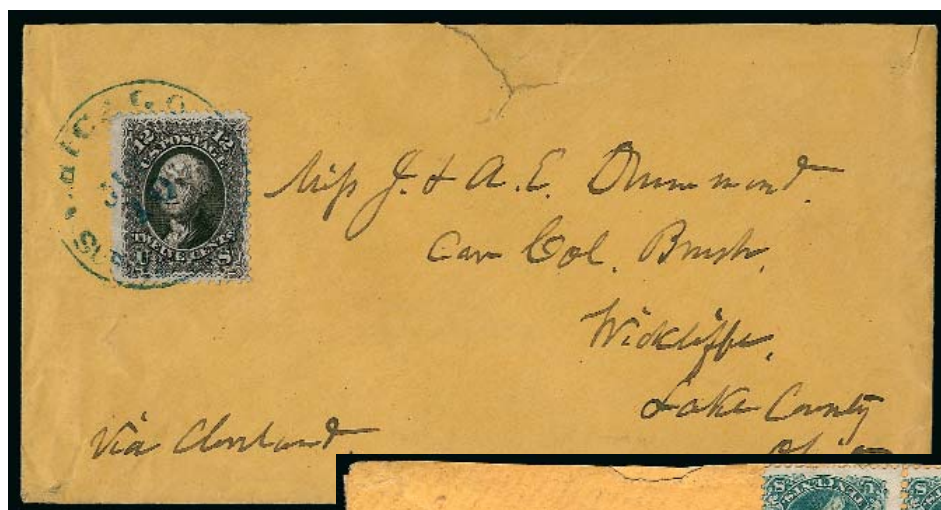 CHICAGO
12 12
U.S. POSTAGE
TWELVE CENTS
U S
Miss J. & A. E. Drummond
Care Col. Brush.
Wickliffe,
Lake County
Ohio
Via Cleveland